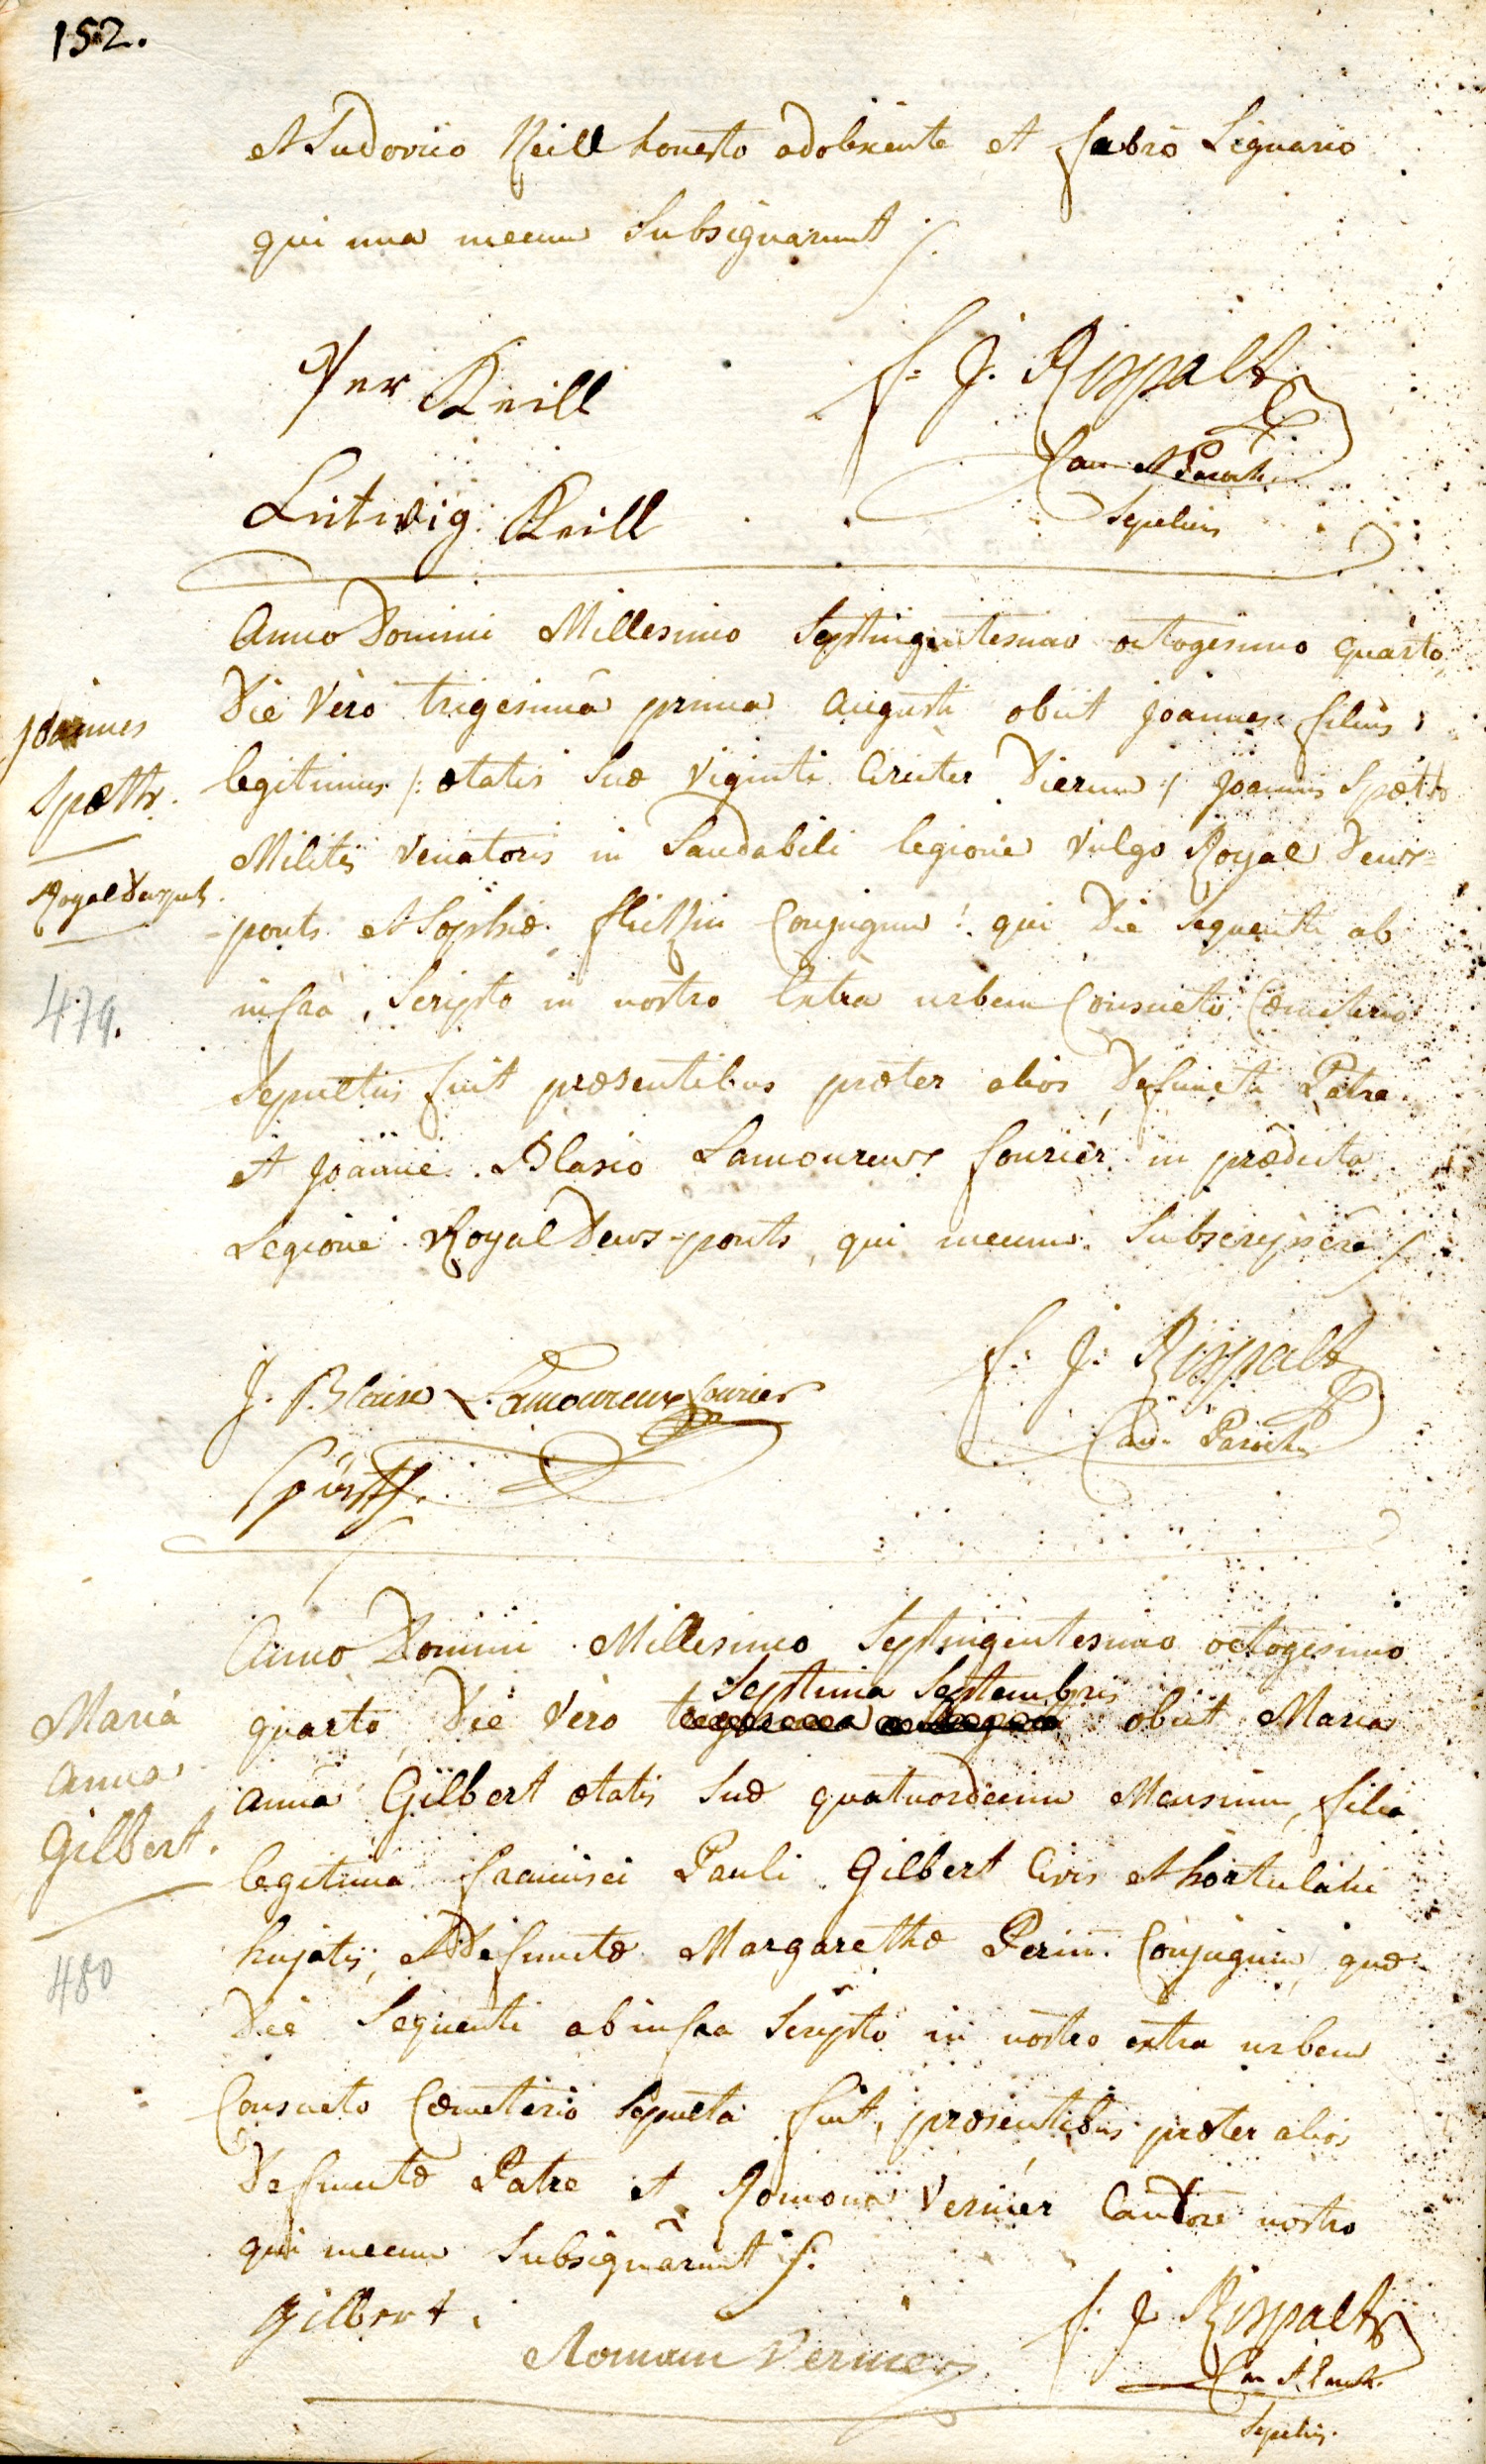 152.
et Ludovico Keill honesto adolescente et fabro Lignario
qui una mecum Subsignarunt
Keill
f: J. Rispalt
Can et Paroch.
Sepeliens
Lutwig Keill
Anno Domini Millesimo Septingentesimo octogesimo quarto,
Die Vero trigesima prima Augusti obiit Joannes filius
Joannes
Spæth.
Royal Deuxponts
479.
legitimus /: ætatis suæ viginti Circiter Dierum :/ Joannis Spæth
Militis Venatoris in Laudabili legione vulgo Royal Deux=
-ponts et Sophiæ Conjugum: qui Die sequenti ab
infra Scripto in nostro Extra urbem Consueto Cæmiterio
Sepultus fuit præsentibus præter alios Defuncti Patre
et Joanne Blasio Lamoureux fourier in prædicta
Legione Royal Deux-ponts, qui mecum Subscripsere
J. Blaise Lamoureux fourier
f: J: Rispalt
Can. Paroch.
Anno Domini Millesimo Septingentesimo octogesimo
Septima Septembris
quarto, Die Vero obiit Maria
Maria
Anna
Gilbert.
480
anna Gilbert ætatis suæ quatuordecim Mensium, filia
legitima francisci Pauli Gilbert Civis et hortulani
hujatis, et Defunctæ Margarethæ Perin Conjugum, quæ
Die Sequenti ab infra Scripto in nostro extra urbem
Consueto Cæmeterio Sepulta fuit, præsentibus præter alios
Defunctæ Patre et Romano Vernier Cantore nostro
qui mecum Subsignarunt
Gilbert.
Romain Vernier
f: J Rispalt
Can et Paroch.
Sepeliens.